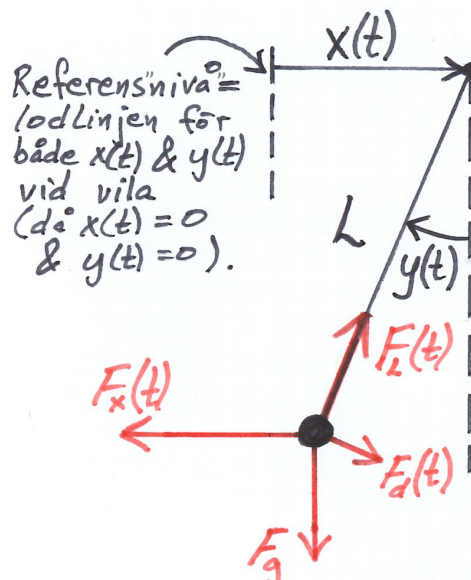 x(t)
Referens"nivå"=
lodlinjen för
både x(t) & y(t)
vid vila
(då x(t)=0
& y(t)=0).
L
y(t)
F_L(t)
F_x(t)
F_d(t)
F_g